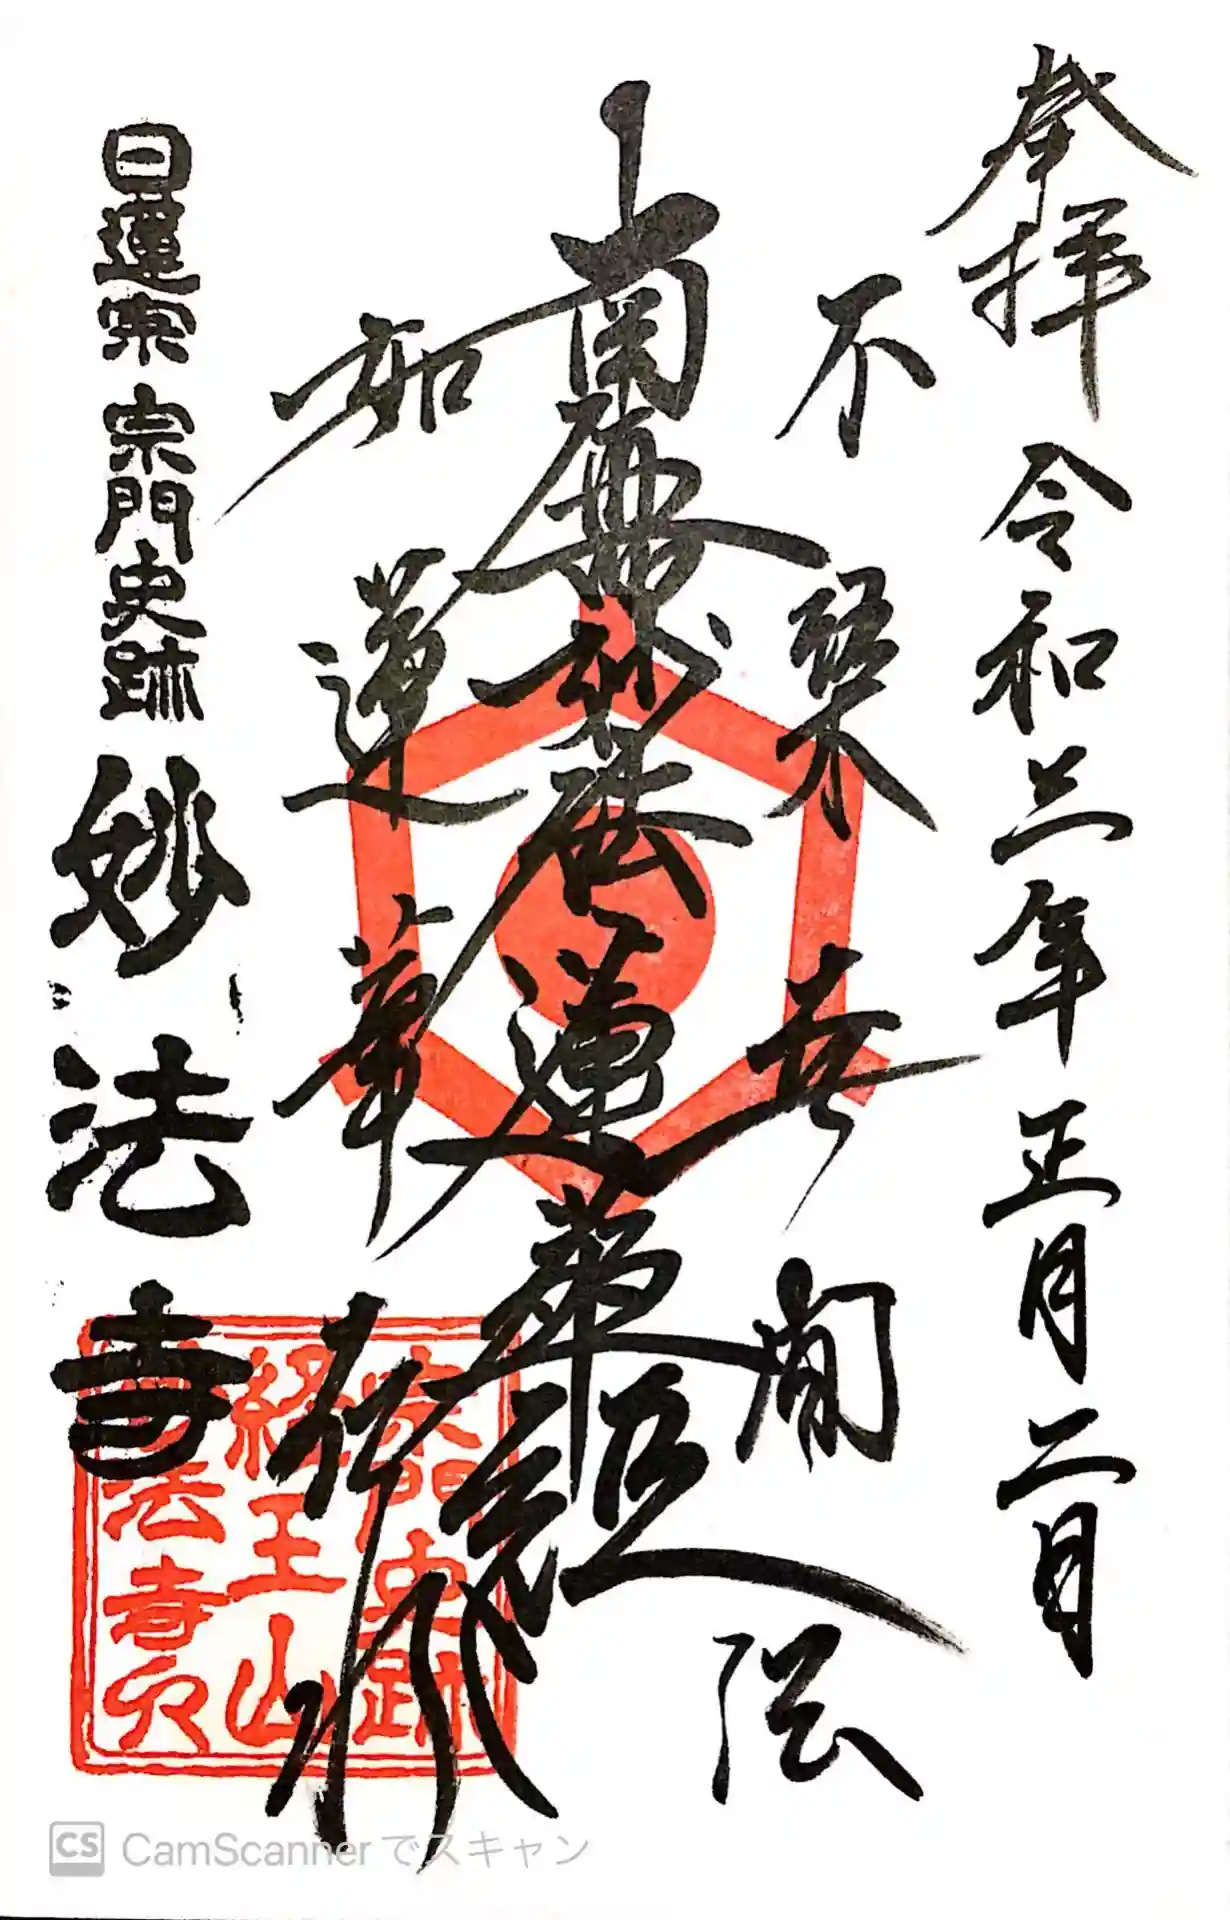 奉拝 令和三年 正月二日
不染世間法
南無妙法蓮華経
如蓮華在水
日蓮宗 宗門史跡 妙法寺
宗門史跡
経王山
妙法寺印
CS CamScannerでスキャン